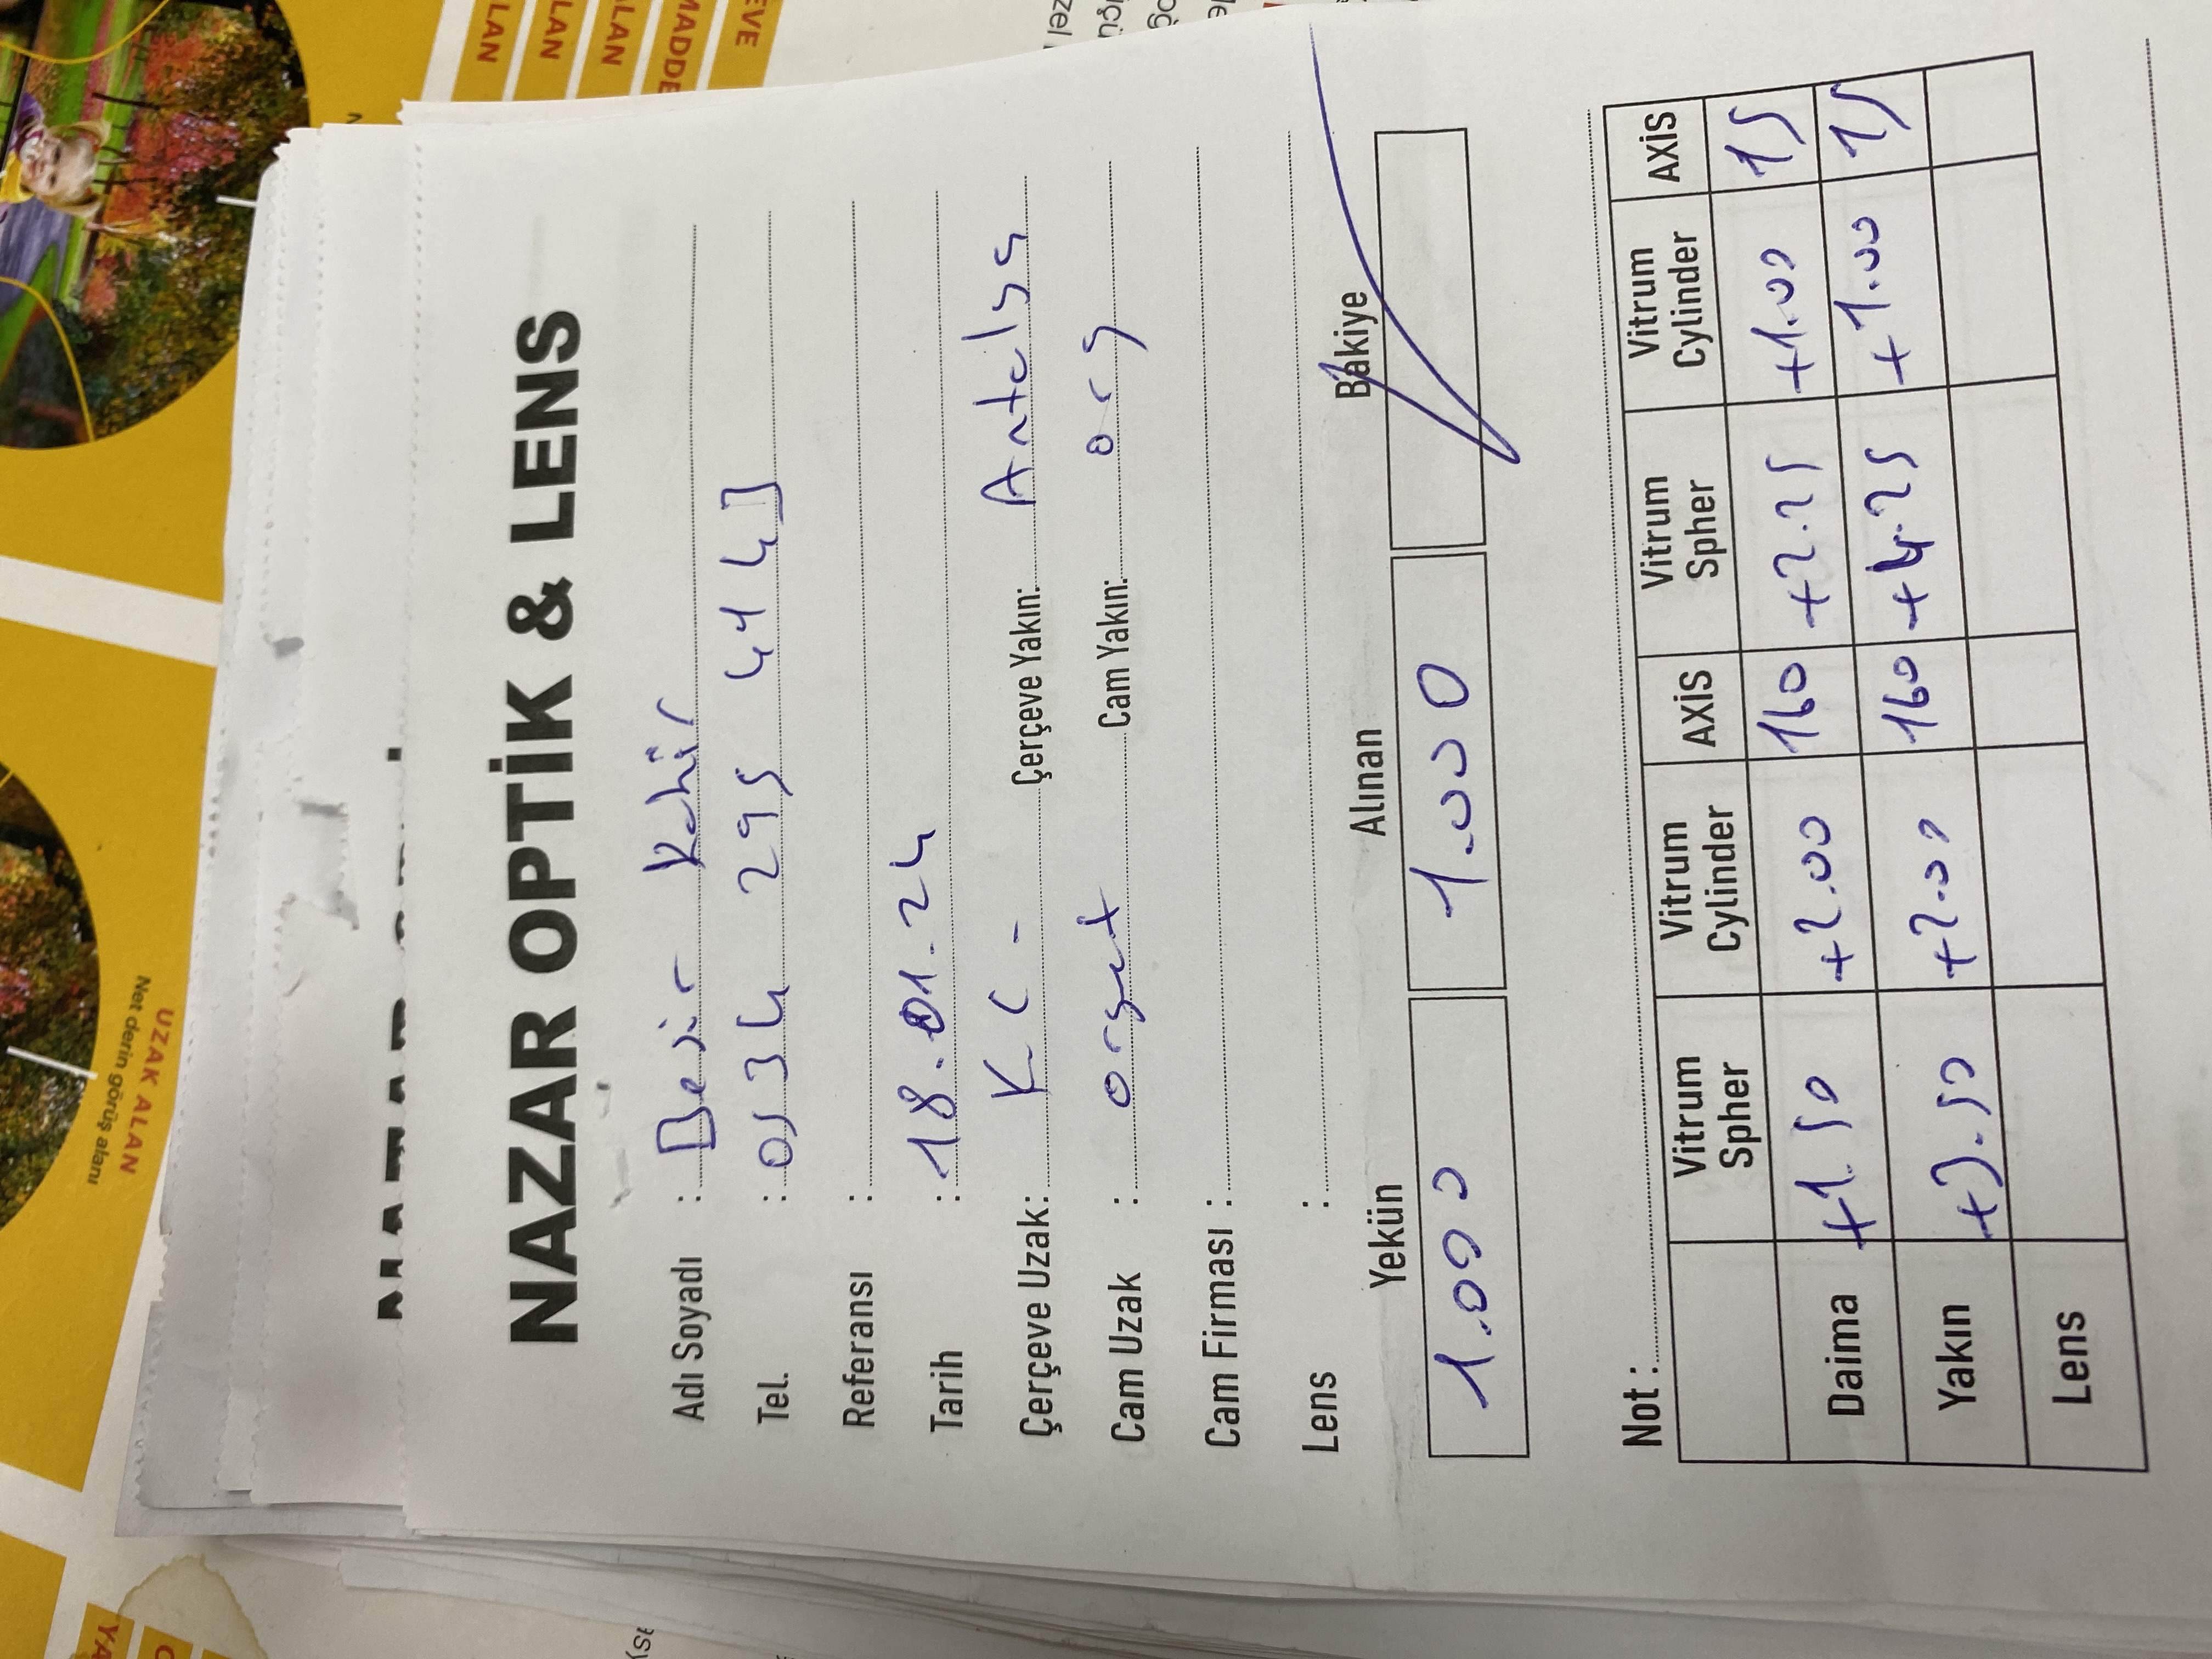 UZAK ALAN
Net derin görüş alanı
NAZAR OPTİK & LENS
Adı Soyadı : Beşir Kahir
Tel. : 0534 295 41 43
Referansı :
Tarih : 18.01.24
Çerçeve Uzak: K.C - Çerçeve Yakın: Antalya
Cam Uzak : orget Cam Yakın: org
Cam Firması :
Lens :
Yekün Alınan Bakiye
1.000 1.000
Not :
Vitrum Spher Vitrum Cylinder AXİS Vitrum Spher Vitrum Cylinder AXİS
Daima +1.50 +2.00 160 +2.25 +1.00 15
Yakın +3.50 +2.00 160 +4.25 +1.00 15
Lens